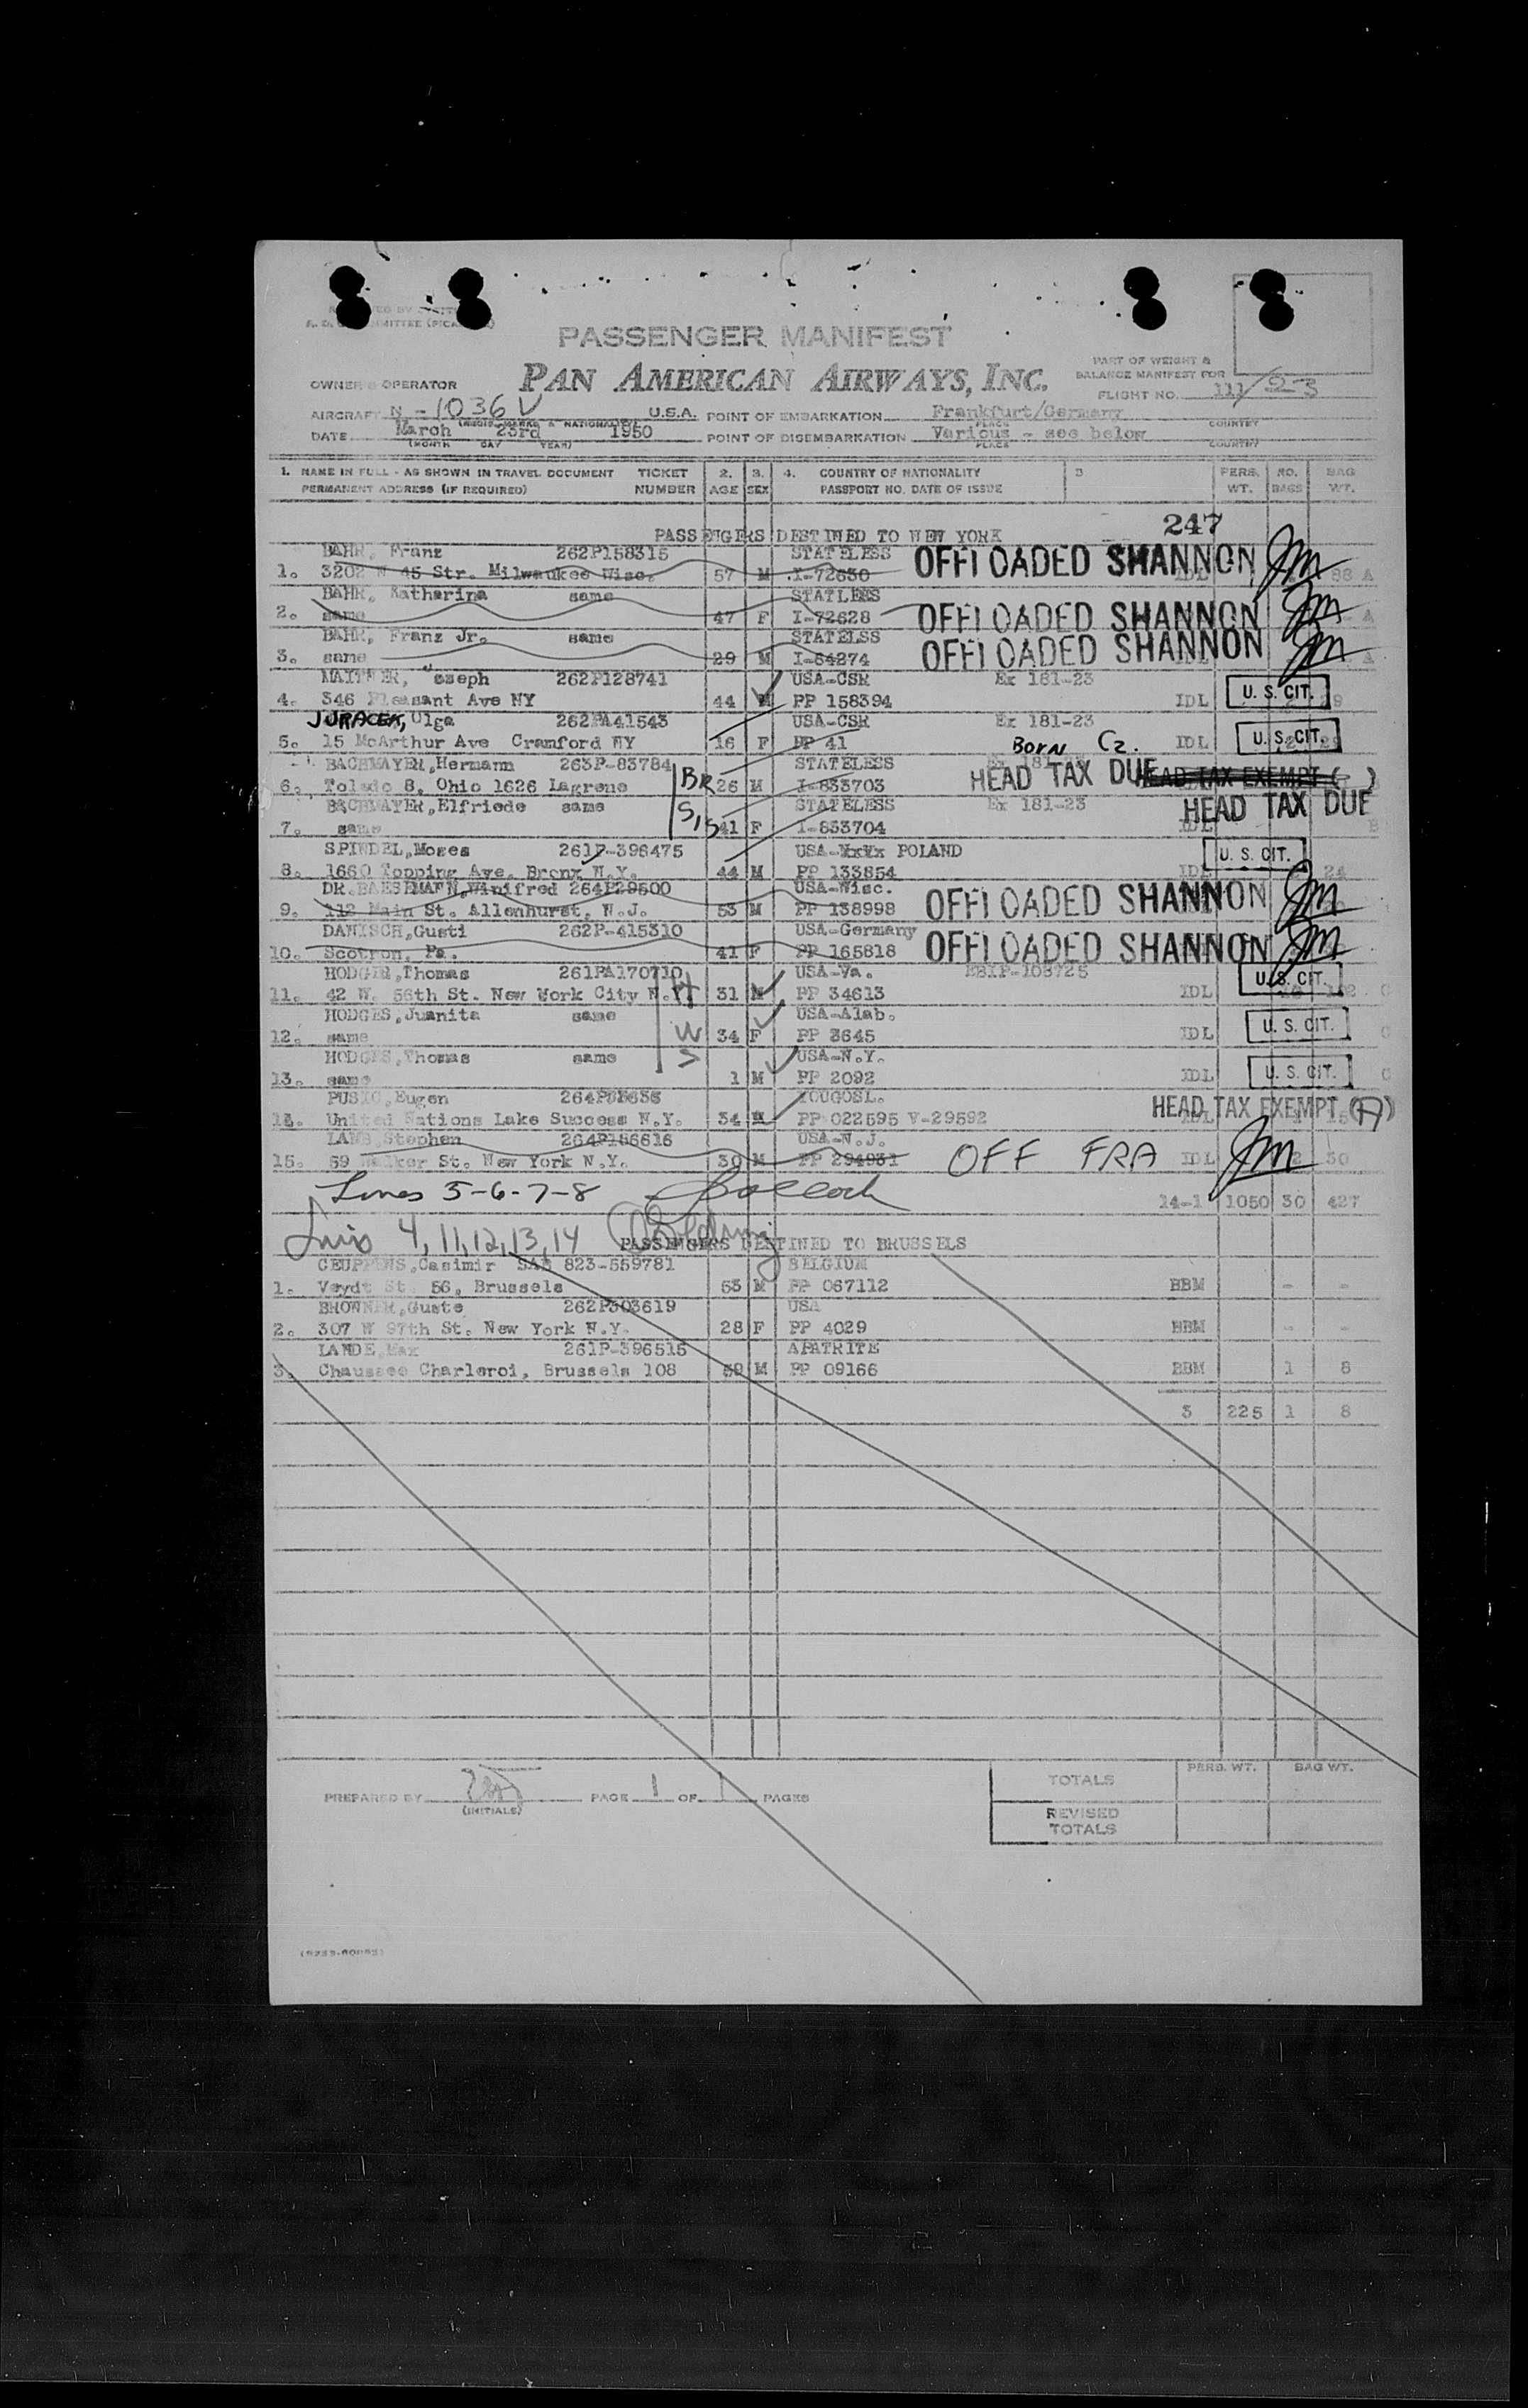 PASSENGER MANIFEST
PAN AMERICAN AIRWAYS, INC.
PART OF WEIGHT &
BALANCE MANIFEST FOR
OWNER & OPERATOR
FLIGHT NO. 111/23
AIRCRAFT N-1036V U.S.A. POINT OF EMBARKATION Frankfurt/Germany
DATE March 23rd 1950 POINT OF DISEMBARKATION Various - see below
(MONTH DAY YEAR) PLACE COUNTRY
1. NAME IN FULL - AS SHOWN IN TRAVEL DOCUMENT TICKET 2. 3. 4. COUNTRY OF NATIONALITY PERS. NO. BAG
PERMANENT ADDRESS (IF REQUIRED) NUMBER AGE SEX PASSPORT NO. DATE OF ISSUE WT. BAGS WT.
247
PASSENGERS DESTINED TO NEW YORK
BAHR, Franz 262P158315 STATELESS OFFLOADED SHANNON
1. 3202 W 45 Str. Milwaukee Wisc. 57 M I-72630
BAHR, Katharina same STATLEES
2. same 47 F I-72628 OFFLOADED SHANNON
BAHR, Franz Jr. same STATELSS
3. same 29 M I-64274 OFFLOADED SHANNON
Joseph 262P128741 USA-CSR Ex 181-23
4. 346 Pleasant Ave NY 44 M PP 158394 IDL U. S. CIT.
JURACEK, Olga 262PA41543 USA-CSR Ex 181-23
5. 15 McArthur Ave Cramford NY 16 F PP 41 BORN CZ. IDL U. S. CIT.
BACHMAYER, Hermann 263P-83784 STATELESS
6. Toledo 8, Ohio 1626 Lagrene BR 26 M I-833703 HEAD TAX DUE HEAD TAX EXEMPT ( )
BACHMAYER, Elfriede same STATELESS Ex 181-23 HEAD TAX DUE
7. same SIS 41 F I-833704
SPINDEL, Moses 261P-396475 USA-XxXx POLAND U. S. CIT.
8. 1660 Topping Ave. Bronx N.Y. 44 M PP 133854 IDL 24
DR. BAESEMANN, Winifred 264P29500 USA-Wisc.
9. 112 Main St. Allenhurst, N.J. 53 M PP 138998 OFFLOADED SHANNON
DANISCH, Gusti 262P-415310 USA-Germany
10. Scotron, Pa. 41 F PP 165818 OFFLOADED SHANNON
HODGES, Thomas 261PA170710 USA-Va.
11. 42 W. 56th St. New York City N.Y. H 31 M PP 34613 IDL U. S. CIT.
HODGES, Juanita same USA-Alab.
12. same W 34 F PP 3645 IDL U. S. CIT.
HODGES, Thomas same USA-N.Y.
13. same 1 M PP 2092 IDL U. S. CIT.
PUSIC, Eugen YOUGOSL.
14. United Nations Lake Success N.Y. 34 M PP 022595 V-29592 HEAD TAX EXEMPT (A)
LANG, Stephen 264P186616 USA-N.J.
15. 59 Walker St. New York N.Y. 30 M PP 294931 OFF FRA IDL 2 30
Lines 5-6-7-8 14-1 1050 30 427
Lines 4, 11, 12, 13, 14
PASSENGERS DESTINED TO BRUSSELS
CEUPPENS, Casimir SAB 823-559781 BELGIUM
1. Veydt St. 56, Brussels 53 M PP 067112 BBM - -
BROWNER, Guste 262P303619 USA
2. 307 W 97th St. New York N.Y. 28 F PP 4029 BBM - -
LANDE, Max 261P-396515 APATRITE
3. Chaussee Charleroi, Brussels 108 59 M PP 09166 BBM 1 8
3 225 1 8
PERS. WT. BAG WT.
TOTALS
PREPARED BY PAGE 1 OF 1 PAGES
(INITIALS)
REVISED
TOTALS